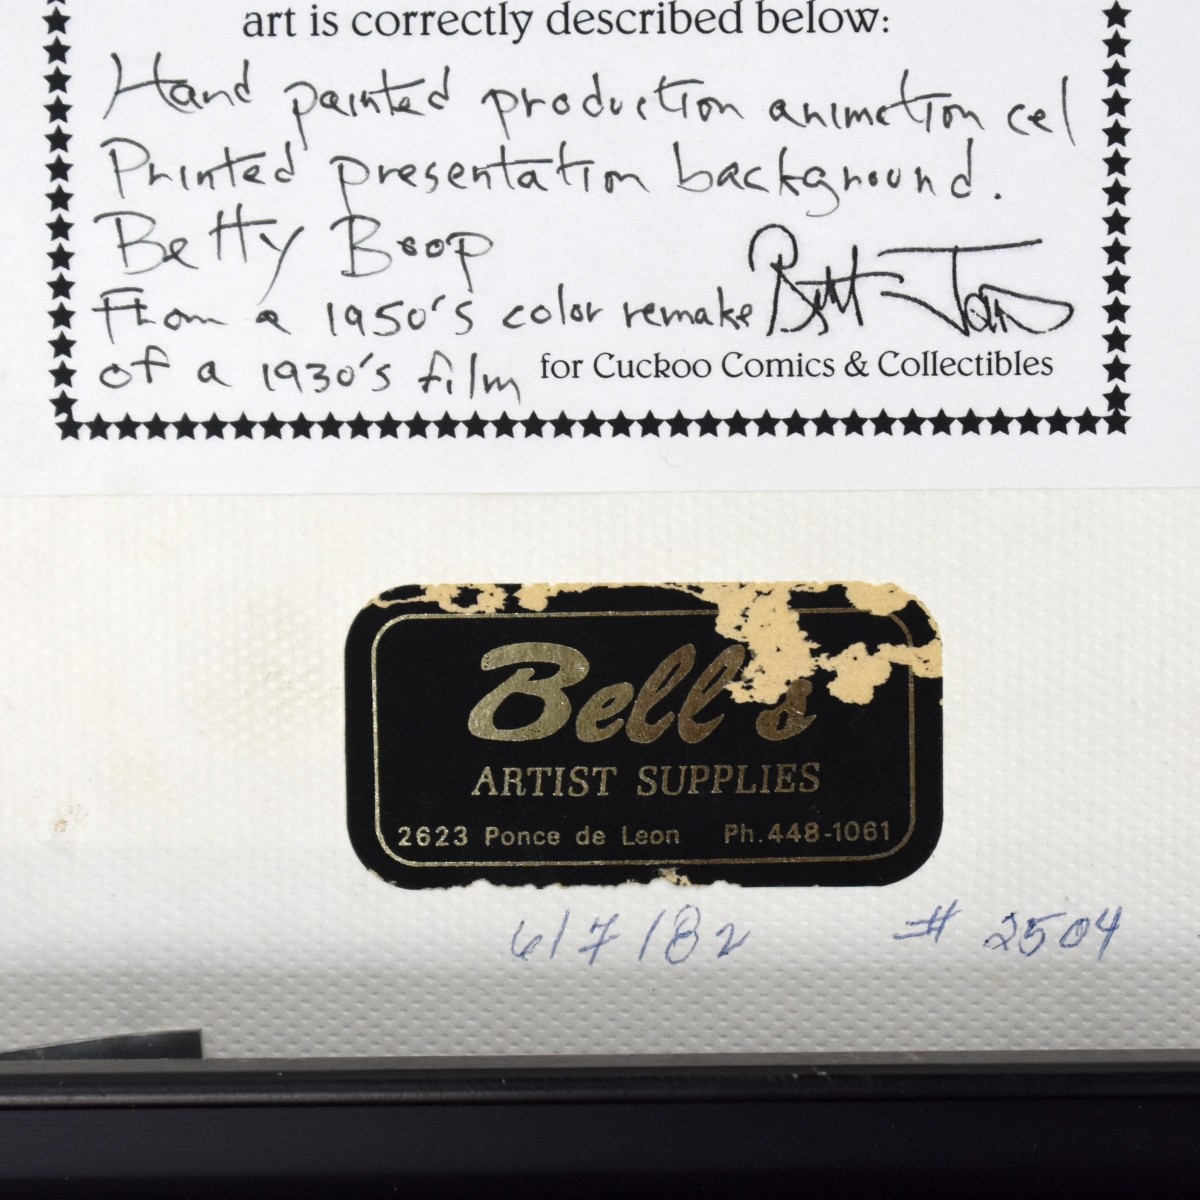 art is correctly described below:
Hand painted production animation cel
Printed presentation background.
Betty Boop
From a 1950's color remake
of a 1930's film
for Cuckoo Comics & Collectibles
Bell's
ARTIST SUPPLIES
2623 Ponce de Leon Ph.448-1061
6/7/82 # 2504